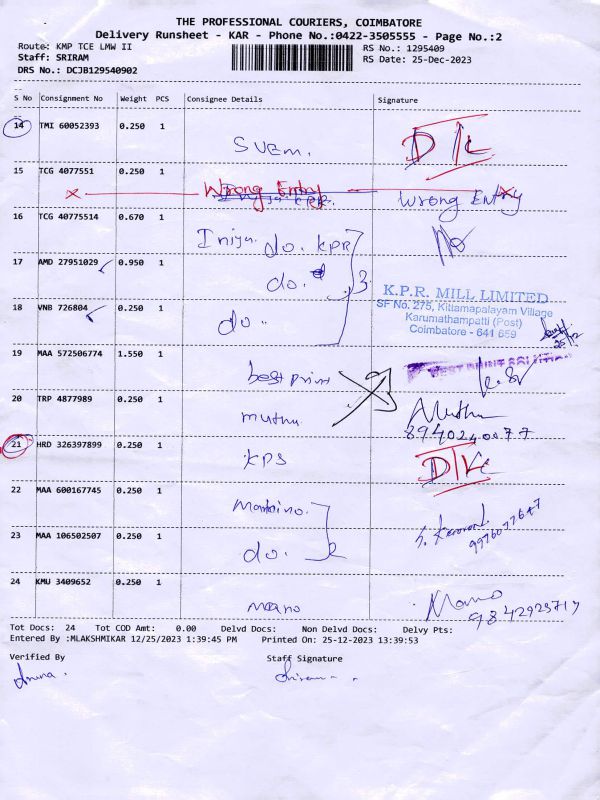 THE PROFESSIONAL COURIERS, COIMBATORE
Delivery Runsheet - KAR - Phone No.:0422-3505555 - Page No.:2
Route: KMP TCE LMW II
RS No.: 1295409
Staff: SRIRAM
RS Date: 25-Dec-2023
DRS No.: DCJB129540902
S No Consignment No Weight PCS Consignee Details Signature
14 TMI 60052393 0.250 1
SVEM.
15 TCG 4077551 0.250 1
Wrong Entry Wrong Entry
16 TCG 40775514 0.670 1
do. KPR
17 AMD 27951029 0.950 1
do. 3
K.P.R. MILL LIMITED
SF No. 275, Kittampalayam Village
Karumathampatti (Post)
Coimbatore - 641 659
18 VNB 726804 0.250 1
do.
19 MAA 572506774 1.550 1
best print
20 TRP 4877989 0.250 1
muthu Muthu
21 HRD 326397899 0.250 1
KPS
22 MAA 600167745 0.250 1
23 MAA 106502507 0.250 1
do. 2
24 KMU 3409652 0.250 1
mano Mano
Tot Docs: 24 Tot COD Amt: 0.00 Delvd Docs: Non Delvd Docs: Delvy Pts:
Entered By :MLAKSHMIKAR 12/25/2023 1:39:45 PM Printed On: 25-12-2023 13:39:53
Verified By Staff Signature